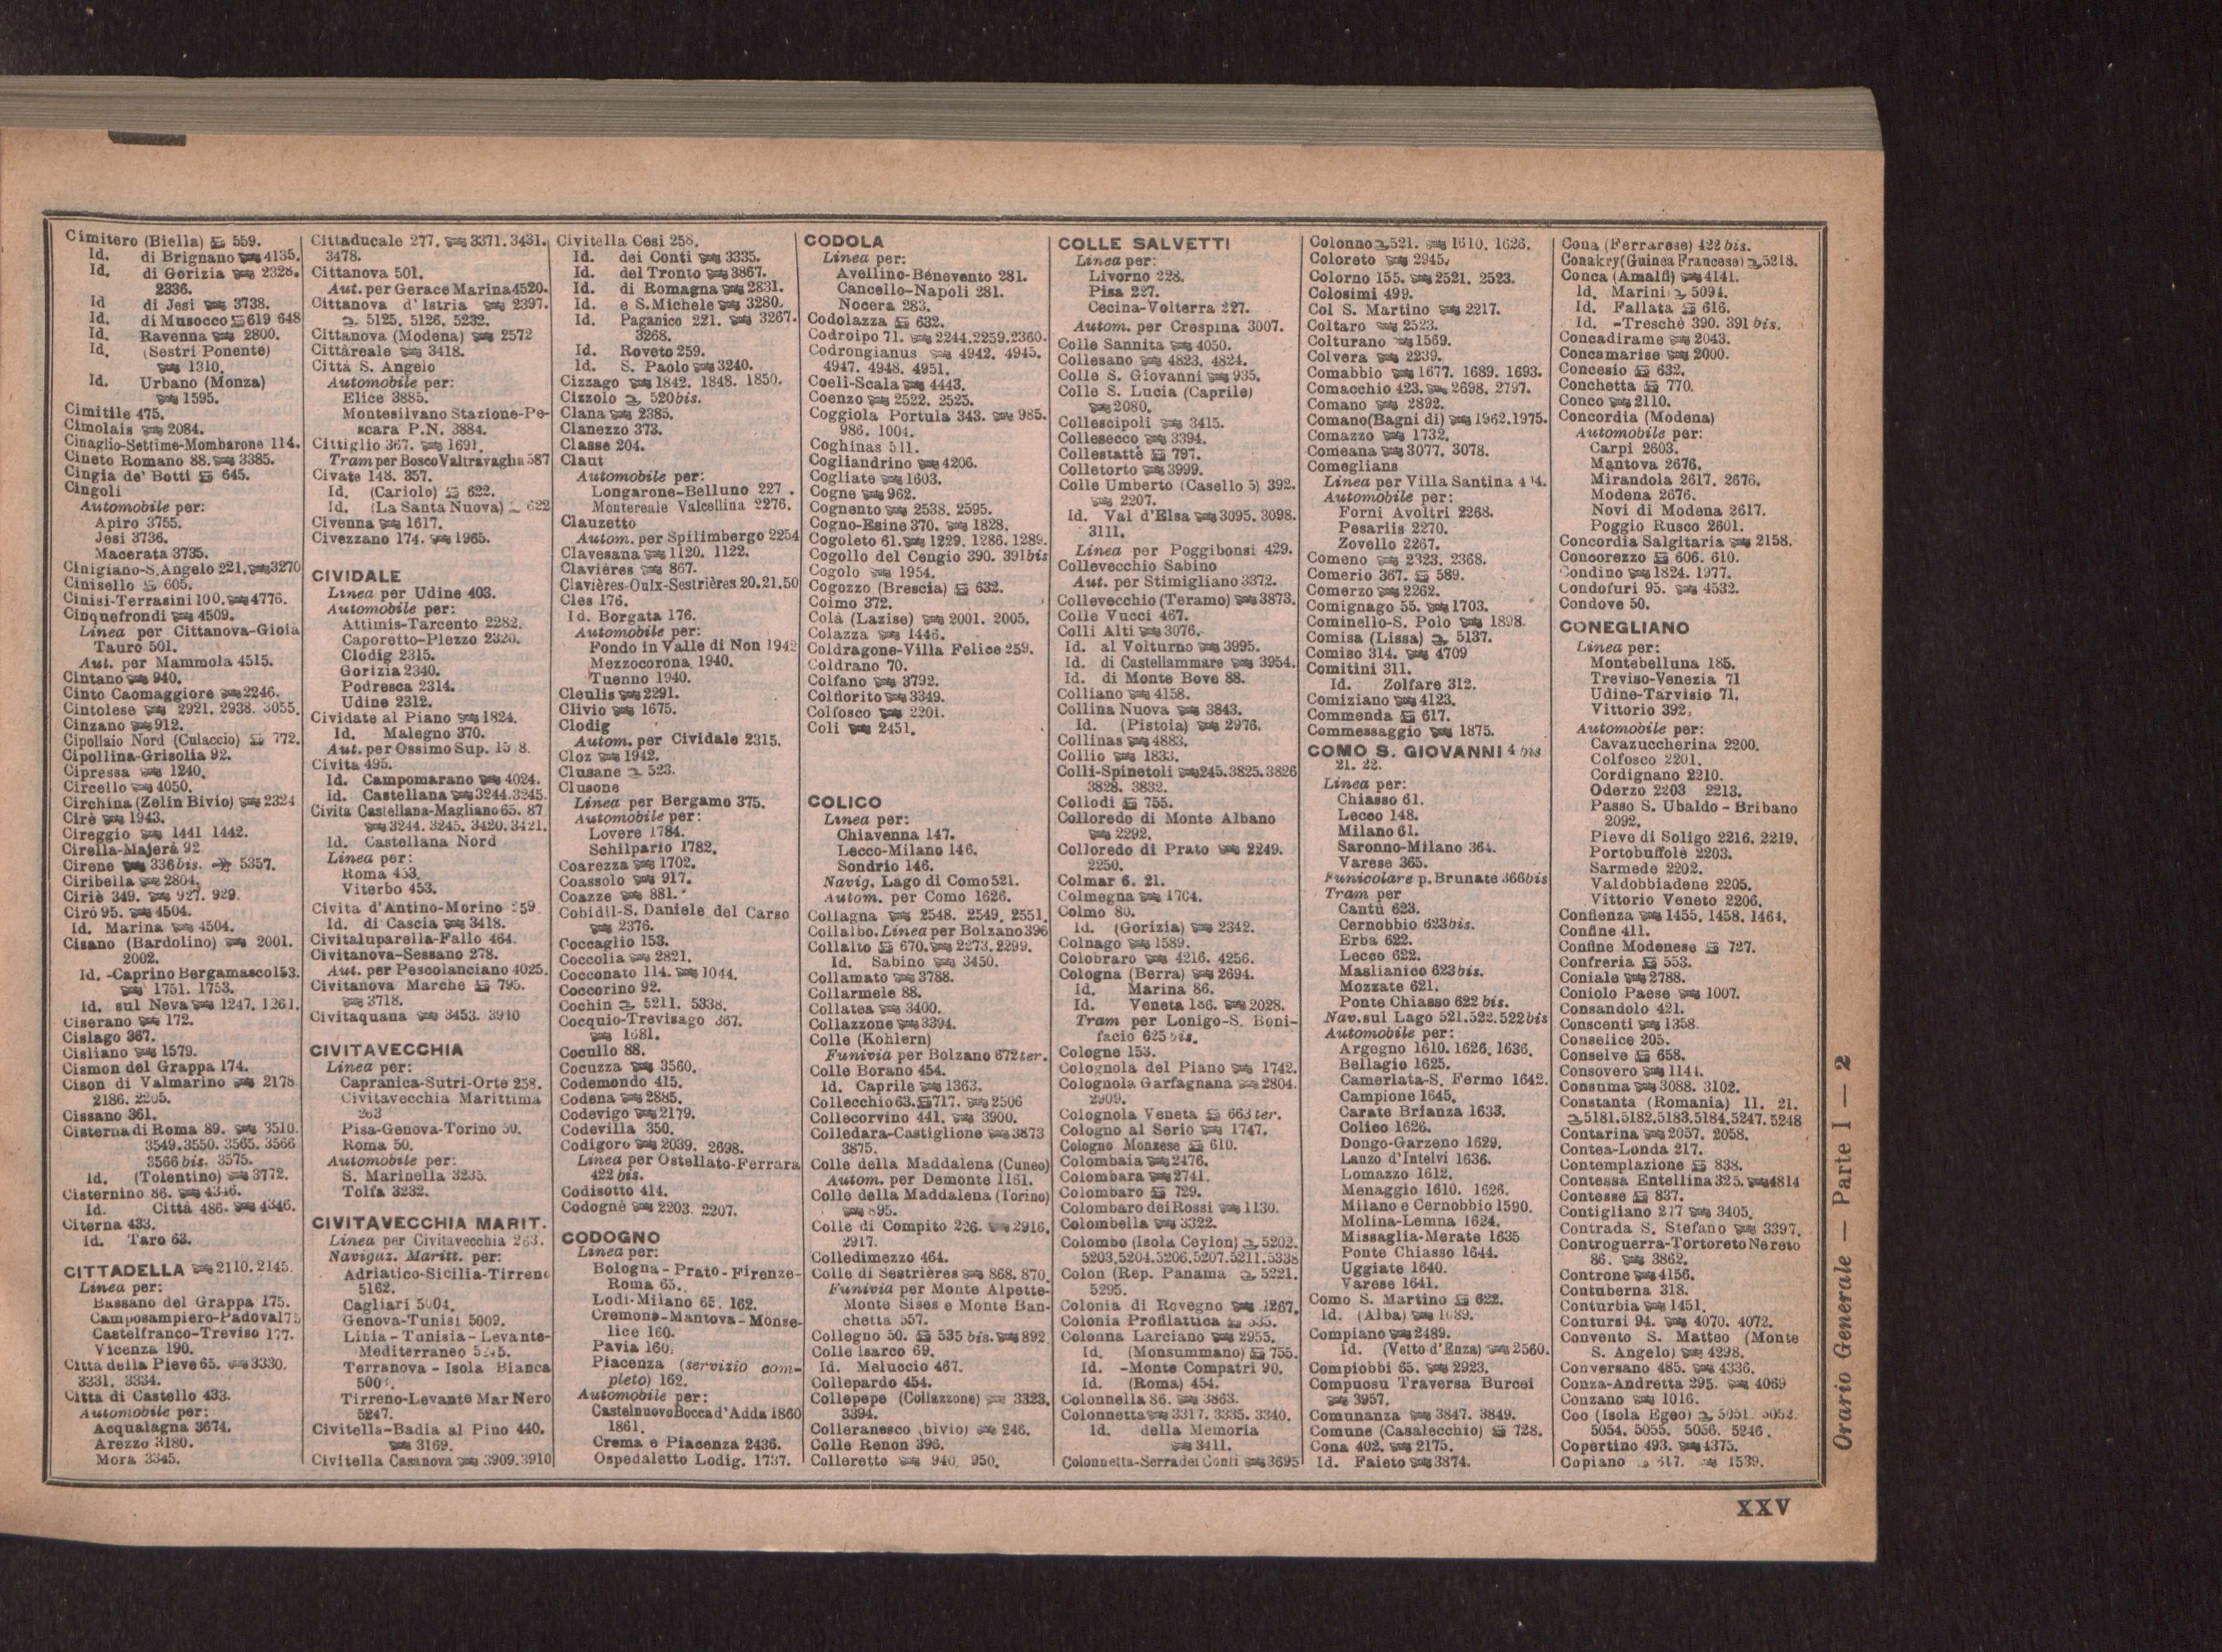 Cimitero (Biella) 559.
Id. di Brignano 4135.
Id. di Gorizia 2328.
2336.
Id di Jesi 3738.
Id. di Musocco 619 648
Id. Ravenna 2800.
Id. (Sestri Ponente)
1310.
Id. Urbano (Monza)
1595.
Cimitile 475.
Cimolais 2084.
Cinaglio-Settime-Mombarone 114.
Cineto Romano 88. 3385.
Cingia de' Botti 645.
Cingoli
Automobile per:
Apiro 3755.
Jesi 3736.
Macerata 3735.
Cinigiano-S. Angelo 221. 3270
Cinisello 605.
Cinisi-Terrasini 100. 4776.
Cinquefrondi 4509.
Linea per Cittanova-Gioia
Tauro 501.
Aut. per Mammola 4515.
Cintano 940.
Cinto Caomaggiore 2246.
Cintolese 2921. 2938. 3055.
Cinzano 912.
Cipollaio Nord (Culaccio) 772.
Cipollina-Grisolia 92.
Cipressa 1240.
Circello 4050.
Circhina (Zelin Bivio) 2324
Cirè 1943.
Cireggio 1441 1442.
Cirella-Majerà 92
Cirene 336bis. 5357.
Ciribella 2804.
Ciriè 349. 927. 929.
Cirò 95. 4504.
Id. Marina 4504.
Cisano (Bardolino) 2001.
2002.
Id. -Caprino Bergamasco 153.
1751. 1753.
Id. sul Neva 1247. 1261.
Ciserano 172.
Cislago 367.
Cisliano 1579.
Cismon del Grappa 174.
Cison di Valmarino 2178
2186. 2205.
Cissano 361.
Cisterna di Roma 89. 3510.
3549. 3550. 3565. 3566
3566bis. 3575.
Id. (Tolentino) 3772.
Cisternino 86. 4346.
Id. Città 486. 4346.
Citerna 433.
Id. Taro 63.
CITTADELLA 2110. 2145.
Linea per:
Bassano del Grappa 175.
Camposampiero-Padova 175
Castelfranco-Treviso 177.
Vicenza 190.
Città della Pieve 65. 3330.
3331. 3334.
Città di Castello 433.
Automobile per:
Acqualagna 3674.
Arezzo 3180.
Mora 3345.
Cittaducale 277. 3371. 3431.
3478.
Cittanova 501.
Aut. per Gerace Marina 4520.
Cittanova d'Istria 2397.
5125. 5126. 5232.
Cittanova (Modena) 2572
Cittàreale 3418.
Città S. Angelo
Automobile per:
Elice 3885.
Montesilvano Stazione-Pe-
scara P.N. 3884.
Cittiglio 367. 1691.
Tram per Bosco Valtravaglia 587
Civate 148. 357.
Id. (Cariolo) 622.
Id. (La Santa Nuova) 622
Civenna 1617.
Civezzano 174. 1965.
CIVIDALE
Linea per Udine 403.
Automobile per:
Attimis-Tarcento 2282.
Caporetto-Plezzo 2320.
Clodig 2315.
Gorizia 2340.
Podresca 2314.
Udine 2312.
Cividate al Piano 1824.
Id. Malegno 370.
Aut. per Ossimo Sup.
Civita 495.
Id. Campomarano 4024.
Id. Castellana 3244. 3245.
Civita Castellana-Magliano 65. 87
3244. 3245. 3420. 3421.
Id. Castellana Nord
Linea per:
Roma 453.
Viterbo 453.
Civita d'Antino-Morino 259
Id. di Cascia 3418.
Civitaluparella-Fallo 464.
Civitanova-Sessano 278.
Aut. per Pescolanciano 4025.
Civitanova Marche 795.
3718.
Civitaquana 3453. 3910
CIVITAVECCHIA
Linea per:
Capranica-Sutri-Orte 258.
Civitavecchia Marittima
263
Pisa-Genova-Torino 50.
Roma 50.
Automobile per:
S. Marinella 3235.
Tolfa 3232.
CIVITAVECCHIA MARIT.
Linea per Civitavecchia 263.
Navigaz. Maritt. per:
Adriatico-Sicilia-Tirreno
5162.
Cagliari 5004.
Genova-Tunisi 5009.
Libia-Tunisia-Levante-
Mediterraneo
Terranova-Isola Bianca
Tirreno-Levante Mar Nero
5247.
Civitella-Badia al Pino 440.
3169.
Civitella Casanova 3909. 3910
Civitella Cesi 258.
Id. dei Conti 3335.
Id. del Tronto 3867.
Id. di Romagna 2831.
Id. e S. Michele 3280.
Id. Paganico 221. 3267.
3268.
Id. Roveto 259.
Id. S. Paolo 3240.
Cizzago 1842. 1848. 1850.
Cizzolo 520bis.
Clana 2385.
Clanezzo 373.
Classe 204.
Claut
Automobile per:
Longarone-Belluno 227 .
Montereale Valcellina 2276.
Clauzetto
Autom. per Spilimbergo 2254
Clavesana 1120. 1122.
Clavières 867.
Clavières-Oulx-Sestrières 20. 21. 50
Cles 176.
Id. Borgata 176.
Automobile per:
Fondo in Valle di Non 1942
Mezzocorona 1940.
Tuenno 1940.
Cleulis 2291.
Clivio 1675.
Clodig
Autom. per Cividale 2315.
Cloz 1942.
Clusane 523.
Clusone
Linea per Bergamo 375.
Automobile per:
Lovere 1784.
Schilpario 1782.
Coarezza 1702.
Coassolo 917.
Coazze 881.
Cobidil-S. Daniele del Carso
2376.
Coccaglio 153.
Coccolia 2821.
Cocconato 114. 1044.
Coccorino 92.
Cochin 5211. 5338.
Cocquio-Trevisago 367.
1681.
Cocullo 88.
Cocuzza 3560.
Codemondo 415.
Codena 2885.
Codevigo 2179.
Codevilla 350.
Codigoro 2039. 2698.
Linea per Ostellato-Ferrara
422 bis.
Codisotto 414.
Codognè 2203. 2207.
CODOGNO
Linea per:
Bologna-Prato-Firenze-
Roma 65.
Lodi-Milano 65. 162.
Cremona-Mantova-Monse-
lice 160.
Pavia 160.
Piacenza (servizio com-
pleto) 162.
Automobile per:
Castelnuovo Bocca d'Adda 1860
1861.
Crema e Piacenza 2436.
Ospedaletto Lodig. 1737.
CODOLA
Linea per:
Avellino-Benevento 281.
Cancello-Napoli 281.
Nocera 283.
Codolazza 632.
Codroipo 71. 2244. 2259. 2360.
Codrongianus 4942. 4945.
4947. 4948. 4951.
Coell-Scala 4443.
Coenzo 2522. 2525.
Coggiola Portula 343. 985.
986. 1004.
Coghinas 511.
Cogliandrino 4206.
Cogliate 1603.
Cogne 962.
Cognento 2538. 2595.
Cogno-Esine 370. 1828.
Cogoleto 61. 1229. 1286. 1289.
Cogollo del Cengio 390. 391bis
Cogolo 1954.
Cogozzo (Brescia) 632.
Coimo 372.
Colà (Lazise) 2001. 2005.
Colazza 1446.
Coldragone-Villa Felice 259.
Coldrano 70.
Colfano 3792.
Colfiorito 3349.
Colfosco 2201.
Coli 2451.
COLICO
Linea per:
Chiavenna 147.
Lecco-Milano 146.
Sondrio 146.
Navig. Lago di Como 521.
Autom. per Como 1626.
Collagna 2548. 2549. 2551.
Collalbo. Linea per Bolzano 396
Collalto 670. 2273. 2299.
Id. Sabino 3450.
Collamato 3788.
Collarmele 88.
Collatea 3400.
Collazzone 3394.
Colle (Kohlern)
Funivia per Bolzano 672ter.
Colle Borano 454.
Id. Caprile 1363.
Collecchio 63. 717. 2506
Collecorvino 441. 3900.
Colledara-Castiglione 3873
3875.
Colle della Maddalena (Cuneo)
Autom. per Demonte 1161.
Colle della Maddalena (Torino)
895.
Colle di Compito 226. 2916.
2917.
Colledimezzo 464.
Colle di Sestrières 868. 870.
Funivia per Monte Alpette-
Monte Sises e Monte Ban-
chetta 557.
Collegno 50. 535 bis. 892
Colle Isarco 69.
Id. Meluccio 467.
Collepardo 454.
Collepepe (Collazzone) 3323.
3394.
Colleranesco (bivio) 246.
Colle Renon 396.
Colleretto 940. 950.
COLLE SALVETTI
Linea per:
Livorno 228.
Pisa 227.
Cecina-Volterra 227.
Autom. per Crespina 3007.
Colle Sannita 4050.
Collesano 4823. 4824.
Colle S. Giovanni 935.
Colle S. Lucia (Caprile)
2080.
Collescipoli 3415.
Collesecco 3394.
Collestatte 797.
Colletorto 3999.
Colle Umberto (Casello 5) 392.
2207.
Id. Val d'Elsa 3095. 3098.
3111.
Linea per Poggibonsi 429.
Collevecchio Sabino
Aut. per Stimigliano 3372.
Collevecchio (Teramo) 3873.
Colle Vucci 467.
Colli Alti 3076.
Id. al Volturno 3995.
Id. di Castellammare 3954.
Id. di Monte Bove 88.
Colliano 4158.
Collina Nuova 3843.
Id. (Pistoia) 2976.
Collinas 4883.
Collio 1833.
Colli-Spinetoli 245. 3825. 3826
3828. 3832.
Collodi 755.
Colloredo di Monte Albano
2292.
Colloredo di Prato 2249.
2250.
Colmar 6. 21.
Colmegna 1704.
Colmo 80.
Id. (Gorizia) 2342.
Colnago 1589.
Colobraro 4216. 4256.
Cologna (Berra) 2694.
Id. Marina 86.
Id. Veneta 186. 2028.
Tram per Lonigo-S. Boni-
facio 625 bis.
Cologne 153.
Colognola del Piano 1742.
Colognola Garfagnana 2804.
2909.
Colognola Veneta 663ter.
Cologno al Serio 1747.
Cologno Monzese 610.
Colombaia 2476.
Colombara 2741.
Colombaro 729.
Colombaro dei Rossi 1130.
Colombella 3322.
Colombo (Isola Ceylon) 5202.
5203. 5204. 5206. 5207. 5211. 5338
Colon (Rep. Panama 5221.
5295.
Colonia di Rovegno 1267.
Colonia Profilattica 535.
Colonna Larciano 2955.
Id. (Monsummano) 755.
Id. -Monte Compatri 90.
Id. (Roma) 454.
Colonnella 86. 3863.
Colonnetta 3317. 3335. 3340.
Id. della Memoria
3411.
Colonnetta-Serra dei Conti 3695
Colonno 521. 1610. 1626.
Coloreto 2945.
Colorno 155. 2521. 2523.
Colosimi 499.
Col S. Martino 2217.
Coltaro 2523.
Colturano 1569.
Colvera 2239.
Comabbio 1677. 1689. 1693.
Comacchio 423. 2698. 2797.
Comano 2892.
Comano (Bagni di) 1962. 1975.
Comazzo 1732.
Comeana 3077. 3078.
Comeglians
Linea per Villa Santina
Automobile per:
Forni Avoltri 2268.
Pesariis 2270.
Zovello 2267.
Comeno 2323. 2368.
Comerio 367. 589.
Comerzo 2262.
Comignago 55. 1703.
Cominello-S. Polo 1898.
Comisa (Lissa) 5137.
Comiso 314. 4709
Comitini 311.
Id. Zolfare 312.
Comiziano 4123.
Commenda 617.
Commessaggio 1875.
COMO S. GIOVANNI 4 bis
21. 22.
Linea per:
Chiasso 61.
Lecco 148.
Milano 61.
Saronno-Milano 364.
Varese 365.
Funicolare p. Brunate 366bis
Tram per
Cantù 623.
Cernobbio 623bis.
Erba 622.
Lecco 622.
Maslianico 623bis.
Mozzate 621.
Ponte Chiasso 622 bis.
Nav. sul Lago 521. 522. 522bis
Automobile per:
Argegno 1610. 1626. 1636.
Bellagio 1625.
Camerlata-S. Fermo 1642.
Campione 1645.
Carate Brianza 1633.
Colico 1626.
Dongo-Garzeno 1629.
Lanzo d'Intelvi 1636.
Lomazzo 1612.
Menaggio 1610. 1626.
Milano e Cernobbio 1590.
Molina-Lemna 1624.
Missaglia-Merate 1635
Ponte Chiasso 1644.
Uggiate 1640.
Varese 1641.
Como S. Martino 622.
Id. (Alba) 1089.
Compiano 2489.
Id. (Vetto d'Enza) 2560.
Compiobbi 65. 2923.
Compuosu Traversa Burcei
3957.
Comunanza 3847. 3849.
Comune (Casalecchio) 728.
Cona 402. 2175.
Id. Faieto 3874.
Cona (Ferrarese) 422 bis.
Conakry (Guinea Francese) 5218.
Conca (Amalfi) 4141.
Id. Marini 5094.
Id. Fallata 616.
Id. -Treschè 390. 391 bis.
Concadirame 2043.
Concamarise 2000.
Concesio 632.
Conchetta 770.
Conco 2110.
Concordia (Modena)
Automobile per:
Carpi 2603.
Mantova 2676.
Mirandola 2617. 2676.
Modena 2676.
Novi di Modena 2617.
Poggio Rusco 2601.
Concordia Salgitaria 2158.
Concorezzo 606. 610.
Condino 1824. 1977.
Condofuri 95. 4532.
Condove 50.
CONEGLIANO
Linea per:
Montebelluna 185.
Treviso-Venezia 71
Udine-Tarvisio 71.
Vittorio 392.
Automobile per:
Cavazuccherina 2200.
Colfosco 2201.
Cordignano 2210.
Oderzo 2203 2213.
Passo S. Ubaldo-Bribano
2092.
Pieve di Soligo 2216. 2219.
Portobuffolè 2203.
Sarmede 2202.
Valdobbiadene 2205.
Vittorio Veneto 2206.
Confienza 1455. 1458. 1464.
Confine 411.
Confine Modenese 727.
Confreria 553.
Coniale 2788.
Coniolo Paese 1007.
Consandolo 421.
Conscenti 1358.
Conselice 205.
Conselve 658.
Consovero 1144.
Consuma 3088. 3102.
Constanta (Romania) 11. 21.
5181. 5182. 5183. 5184. 5247. 5248
Contarina 2057. 2058.
Contea-Londa 217.
Contemplazione 838.
Contessa Entellina 325. 4814
Contesse 837.
Contigliano 277 3405.
Contrada S. Stefano 3397.
Controguerra-Tortoreto Nereto
86. 3862.
Controne 4156.
Contuberna 318.
Conturbia 1451.
Contursi 94. 4070. 4072.
Convento S. Matteo (Monte
S. Angelo) 4298.
Conversano 485. 4336.
Conza-Andretta 295. 4069
Conzano 1016.
Coo (Isola Egeo) 5051. 5052.
5054. 5055. 5056. 5246.
Copertino 493. 4375.
Copiano 617. 1539.
Orario Generale — Parte I — 2
XXV